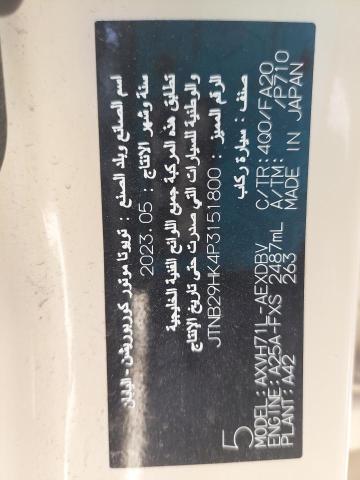 اسم الصانع وبلد الصنع : تويوتا موتور كوربوريشن - اليابان
سنة وشهر الإنتاج : 2023.05
تطابق هذه المركبة جميع اللوائح الفنية الخليجية
والوطنية للسيارات التي صدرت حتى تاريخ الإنتاج
الرقم المميز : JTNB29HK4P3151800
صنف : سيارة ركاب
5
MODEL: AXVH71L-AEXDBV C/TR: 4Q0/FA20
ENGINE: A25A-FXS 2487mL A/TM: /P710
PLANT: A42 263 MADE IN JAPAN